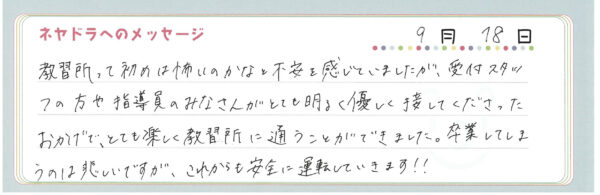 ネヤドラへのメッセージ
9月18日
教習所って初めは怖いのかなと不安を感じていましたが、受付スタッ
フの方や指導員のみなさんがとても明るく優しく接してくださった
おかげで、とても楽しく教習所に通うことができました。卒業してしま
うのは悲しいですが、これからも安全に運転していきます!!